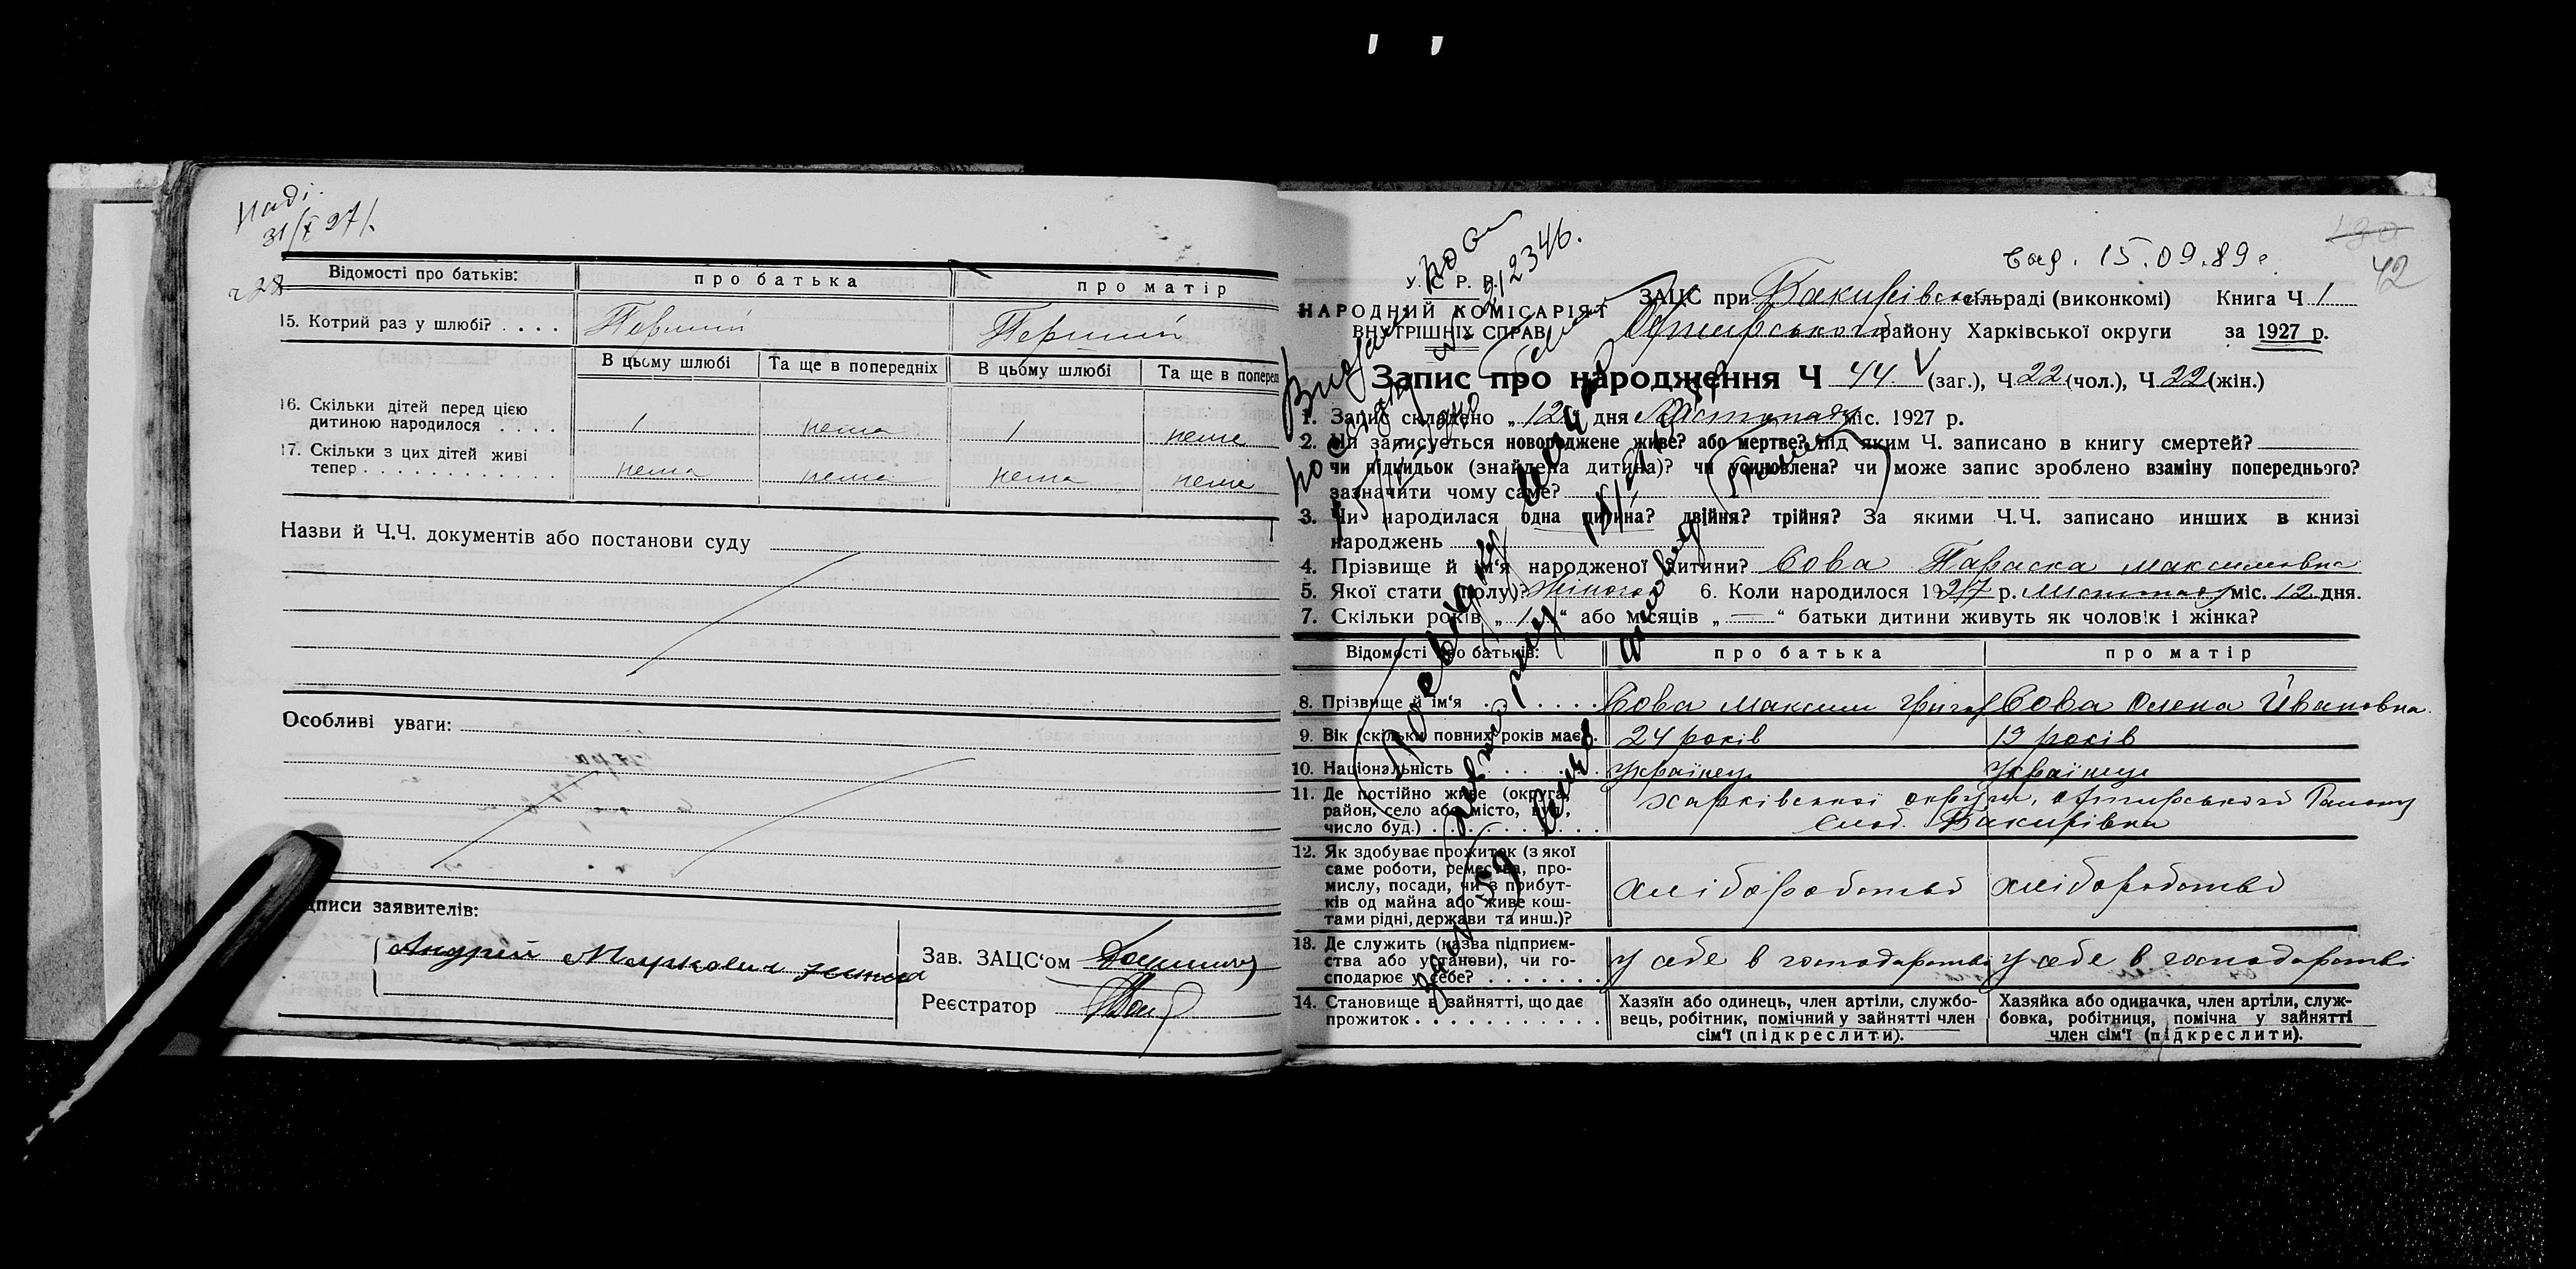 31/X 27 р.
228
Відомості про батьків:
про батька
про матір
15. Котрий раз у шлюбі? . . . .
Перший
Перший
В цьому шлюбі
Та ще в попередніх
В цьому шлюбі
Та ще в поперед
16. Скільки дітей перед цією
дитиною народилося . . . .
1
нема
1
нема
17. Скільки з цих дітей живі
тепер . . . . . . . . . . . .
нема
нема
нема
нема
Назви й Ч.Ч. документів або постанови суду
Особливі уваги:
дписи заявителів:
Андрій Маркович
Зав. ЗАЦС‘ом
Реєстратор
вид. 15.09.89 г.
130
42
У. С. Р. Р.
НАРОДНИЙ КОМІСАРІЯТ
ВНУТРІШНІХ СПРАВ
ЗАЦС при Бакирівськ сільраді (виконкомі) Книга Ч 1
Охтирського району Харківської округи за 1927 р.
Запис про народження Ч 44. (заг.), Ч. 22 (чол.), Ч. 22 (жін.)
1. Запис складено „ 12 “ дня Листопаду міс. 1927 р.
2. Чи записується новороджене живе? або мертве? під яким Ч. записано в книгу смертей?
чи підкидьок (знайдена дитина)? чи усиновлена? чи може запис зроблено взаміну попереднього?
зазначити чому саме?
3. Чи народилася одна дитина? двійня? трійня? За якими Ч.Ч. записано инших в книзі
народжень
4. Прізвище й ім‘я народженої дитини? Сова Параска Максимовна
5. Якої стати (полу)? Жіного 6. Коли народилося 1927 р. Листопаду міс. 12 дня.
7. Скільки років „ 1 “ або місяців „ — “ батьки дитини живуть як чоловік і жінка?
Відомості про батьків:
про батька
про матір
8. Прізвище й ім‘я . . . . . .
Сова Максим Григ
Сова Олена Ивановна
9. Вік (скільки повних років має) .
24 років
19 років
10. Національність . . . . . . .
Українець
Українець
11. Де постійно живе (округа,
район, село або місто, вул.,
число буд.) . . . . . . . . . .
Харківської округи, Охтирського Району
слоб. Бакирівка
12. Як здобуває прожиток (з якої
саме роботи, ремества, про-
мислу, посади, чи з прибут-
ків од майна або живе кош-
тами рідні, держави та инш.)?
хліборобство
хліборобство
13. Де служить (назва підприєм-
ства або установи), чи го-
сподарює у себе? . . . . . . .
у себе в господарстві
у себе в господарстві
14. Становище в зайнятті, що дає
прожиток . . . . . . . . . . .
Хазяїн або одинець, член артіли, службо-
вець, робітник, помічний у зайнятті член
сім‘ї (підкреслити).
Хазяйка або одиначка, член артіли, служ-
бовка, робітниця, помічна у зайнятті
член сім‘ї (підкреслити).